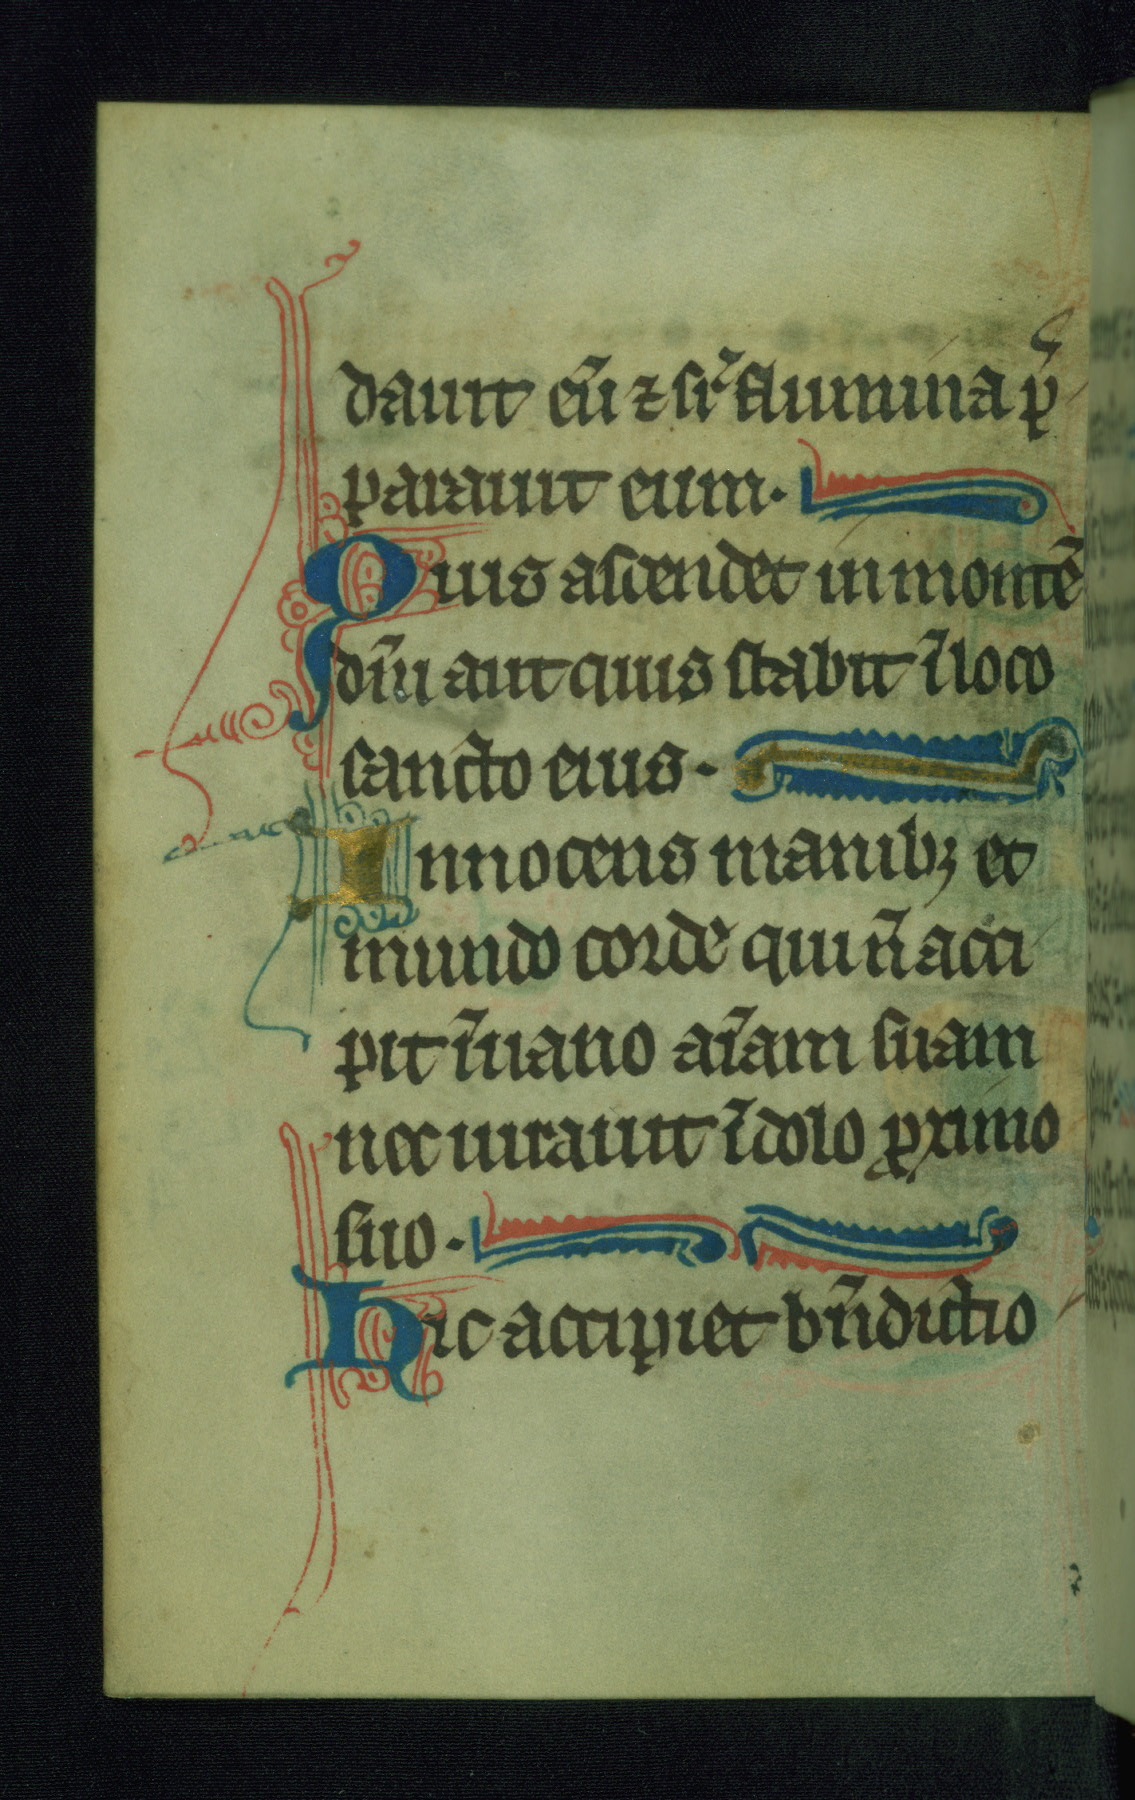 dauit eũ ⁊ sr̃ flumina p̃
parauit eum.
Quis ascendet in montẽ
dñi aut quis stabit ĩ loco
sancto eius.
Innocens manibꝫ et
mundo corde qui ñ acci
pit ĩ uano aĩam suam
nec iurauit ĩ dolo ꝓximo
suo.
Hic accipiet bñdictio